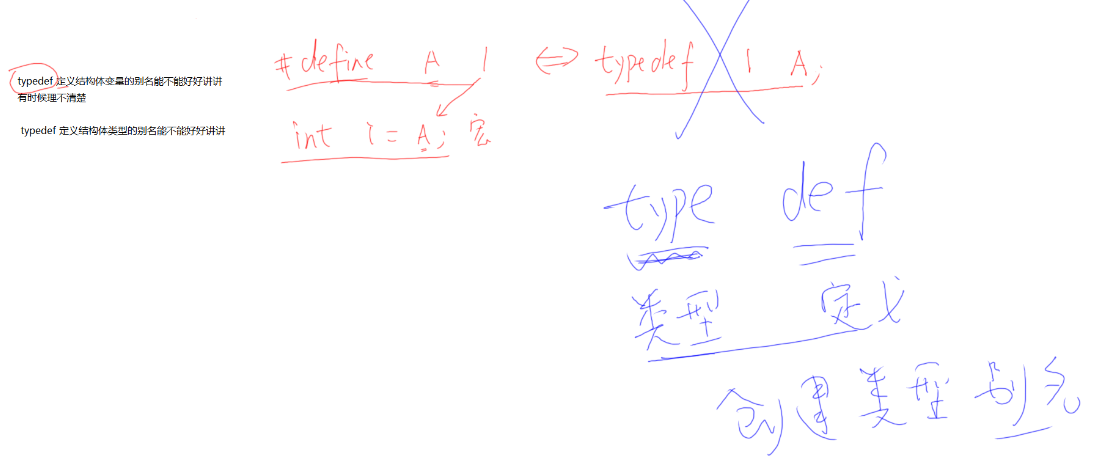 typedef 定义结构体变量的别名能不能好好讲讲
有时候理不清楚
typedef 定义结构体类型的别名能不能好好讲讲
#define A 1 ⇔ typedef 1 A;
int i = A; 宏
type def
类型 定义
创建类型别名